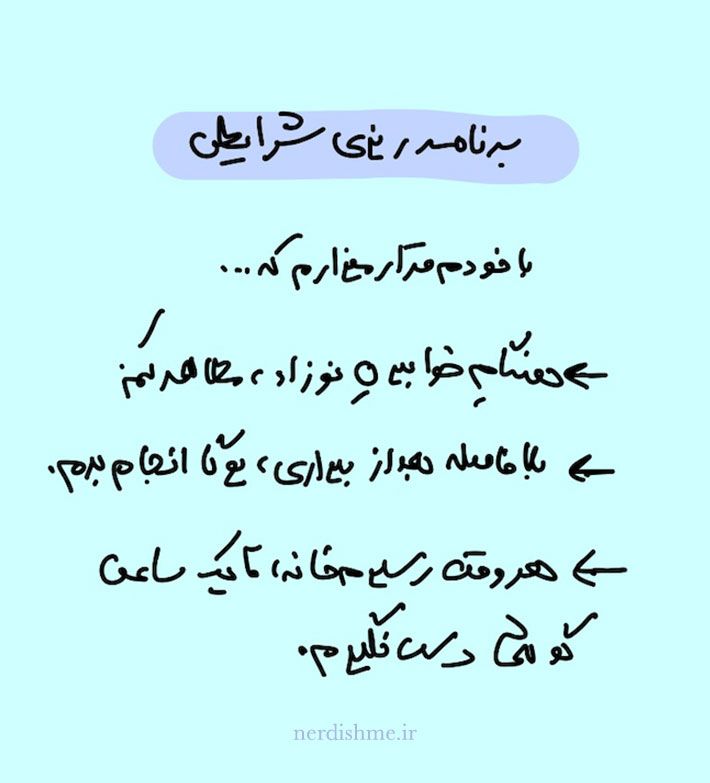 برنامه‌ریزی شرایطی
با خودم قرار میزارم که...
← هنگامِ خوابیدنِ نوزاد، مطالعه کنم
← بلافاصله بعد از بیداری، یوگا انجام بدم.
← هر وقت رسیدم خانه، تا یک ساعت
گوشی دست نگیرم.
nerdishme.ir